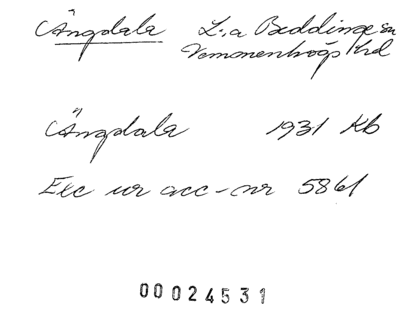 Ängdala L:a Beddinge sn
Vemmenhögs hrd
Ängdala 1931 Kb
Exc ur acc-nr 5861
00024531